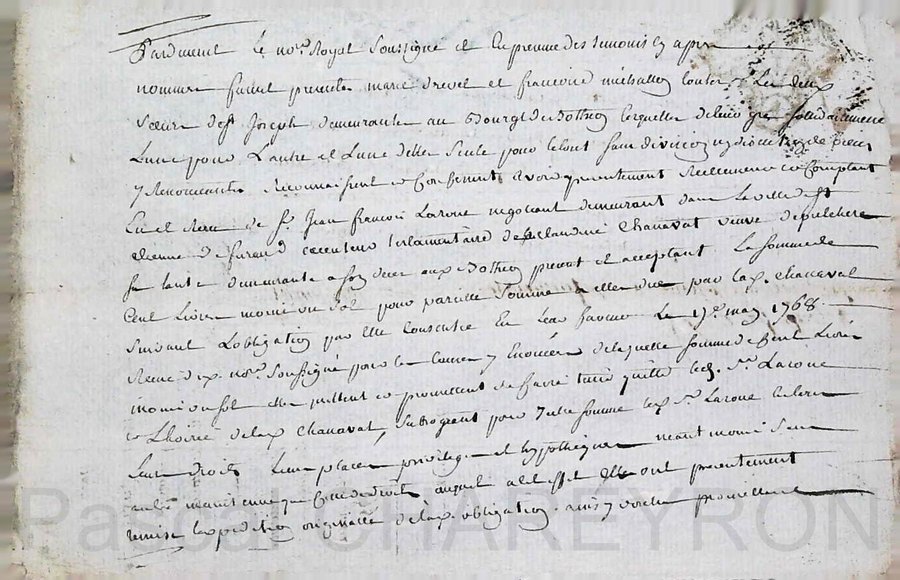 Pardevant le no.re Royal Soussigné et En presence des temoins cy apres
nommes furent presentes marie drevet et francoise
Sœurs de f.t Joseph demeurantes au Bourg de lesquelles de leur gre Solidairement
Lune pour Lautre et Lune delles Seule pour letout Sans division ny discution de biens
y Renoncantes Reconnaissent et Confessent avoir presentement Reellement et Comptant
Eu et Recu de S.r Jean francois Laroue negociant demeurant dans la ville de S.t
etienne de furand executeur testamentaire de Claudine Chanavat veuve
Sa tante demeurante a Son deces aux present et acceptant La Somme de
Cent Livres moins un Sol pour pareille Somme a elles due par lad. Chanavat
Suivant Lobligation par Elle Consentie En leur faveur Le 17.e may 1768
Recue dud. no.re Soussigné pour les Causes y Enoncées de laquelle Somme de Cent Livres
moins un Sol elles quittent et promettent de faire tenir quitte led. S.r Laroue
et Lhoirie de lad. Chanavat, Subrogeant pour ladite Somme led. S.r Laroue
Leurs droits Leurs places privileges et hypotheques neant moins Sans
maintenue ny de droits auquel effet Elles ont presentement
remise Lexpedition originalle de lad. obligation ainsy promettant
Pascal CHAREYRON